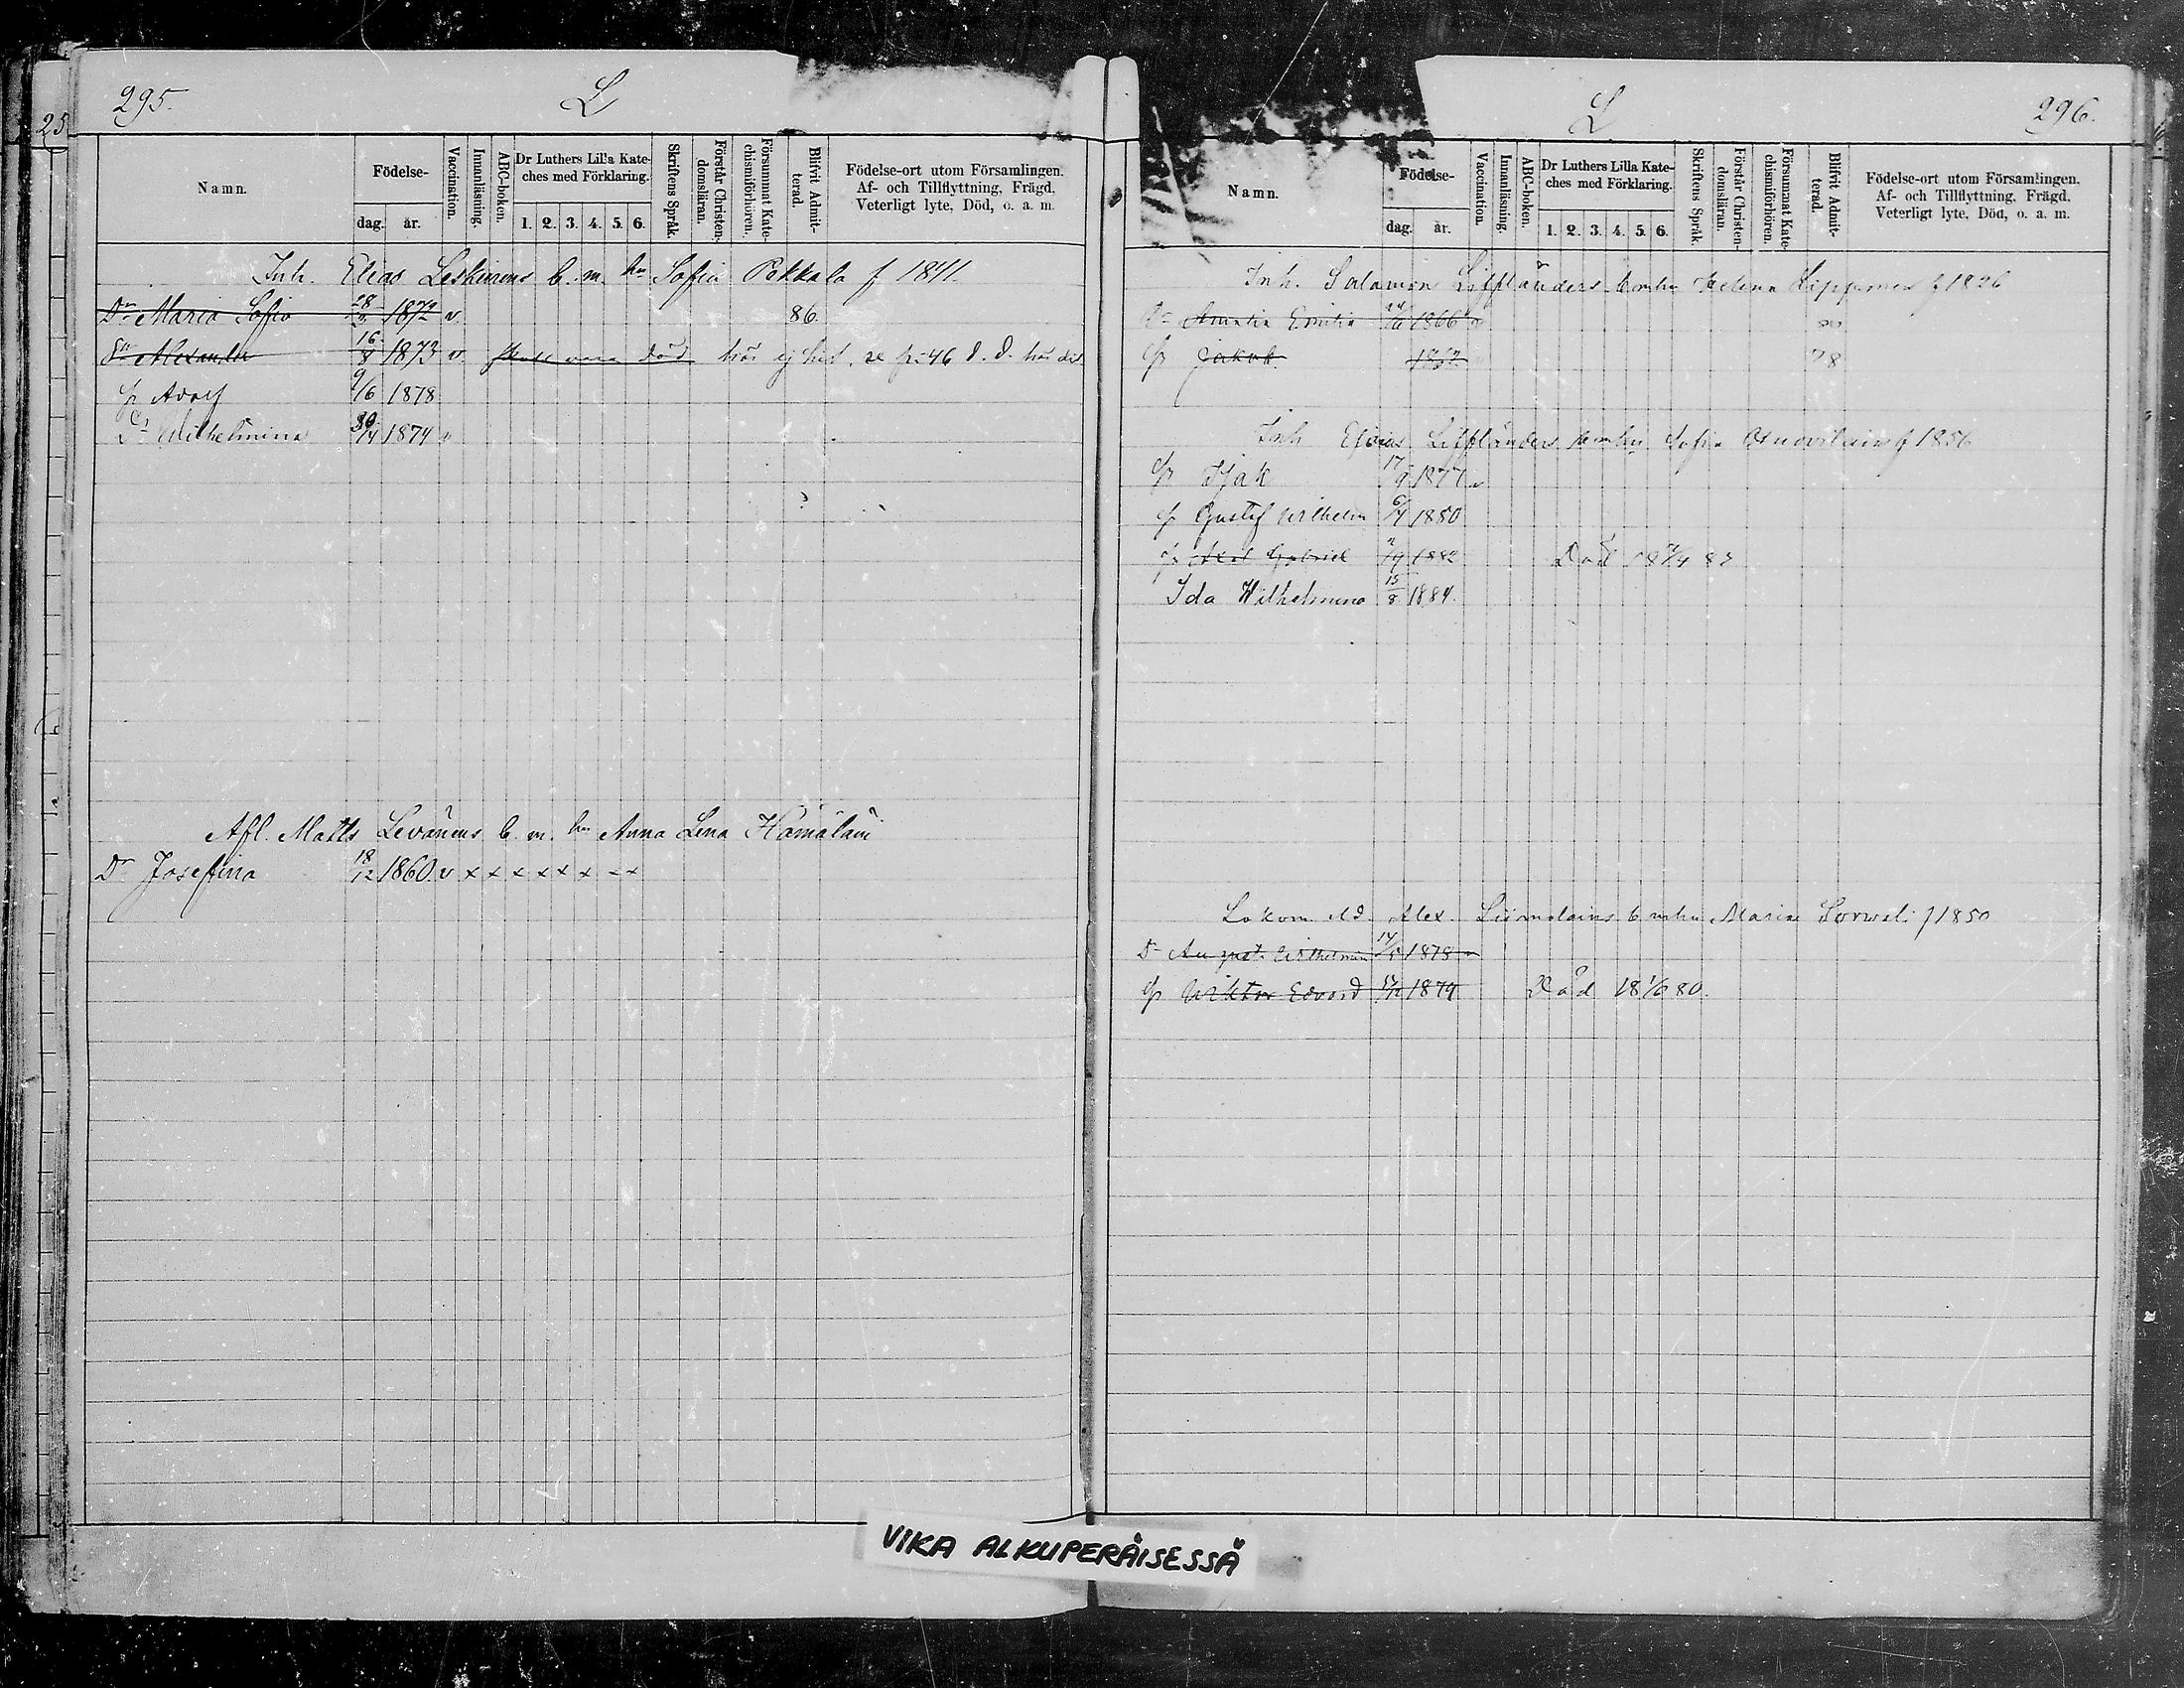 295.
L
25
Namn.
Födelse-
dag. år.
Vaccination.
Innanläsning.
ABC-boken.
Dr Luthers Lilla Kate-
ches med Förklaring.
1. 2. 3. 4. 5. 6.
Skriftens Språk.
Förstår Christen-
domsläran.
Försummat Kate-
chismiförhören.
Blifvit Admit-
terad.
Födelse-ort utom Församlingen.
Af- och Tillflyttning, Frägd,
Veterligt lyte, Död, o. a. m.
Inh. Elias Leskinens b. m. hu Sofia Pekkala f 1841.
Dr Maria Sofia 28/2 1872 v. 86.
Sn Alexander 16/8 1873 v. skall vara död
Adolf 9/6 1878
Dr Wilhelmina 30/4 1874 v
Afl. Matts Levänens b. m. hu Anna Lena Hämäläin
Dr Josefina 18/12 1860. v x x x x x x x x
L
296.
Namn.
Födelse-
dag. år.
Vaccination.
Innanläsning.
ABC-boken.
Dr Luthers Lilla Kate-
ches med Förklaring.
1. 2. 3. 4. 5. 6.
Skriftens Språk.
Förstår Christen-
domsläran.
Försummat Kate-
chismiförhören.
Blifvit Admit-
terad.
Födelse-ort utom Församlingen.
Af- och Tillflyttning, Frägd,
Veterligt lyte, Död, o. a. m.
Inh. Salamon Lifflanders b m hu Helena f 1826
Dr Amalia Emilia 1866
Jakob 78
Inh Lifflanders b m hu Sofia f 1856
Isak 17/9 1877 v
Gustaf Wilhelm 6/4 1880
Axel Gabriel /9 1882 Död
Ida Wilhelmina 15/8 1884.
Lokom. eld. Alex. Liimatains b m hu Maria Sorvali f 1850
Dr Augusta Wilhelmina 14/5 1878 v
Wiktor Edvard 1879 Död 18 1/6 80.
VIKA ALKUPERÄISESSÄ